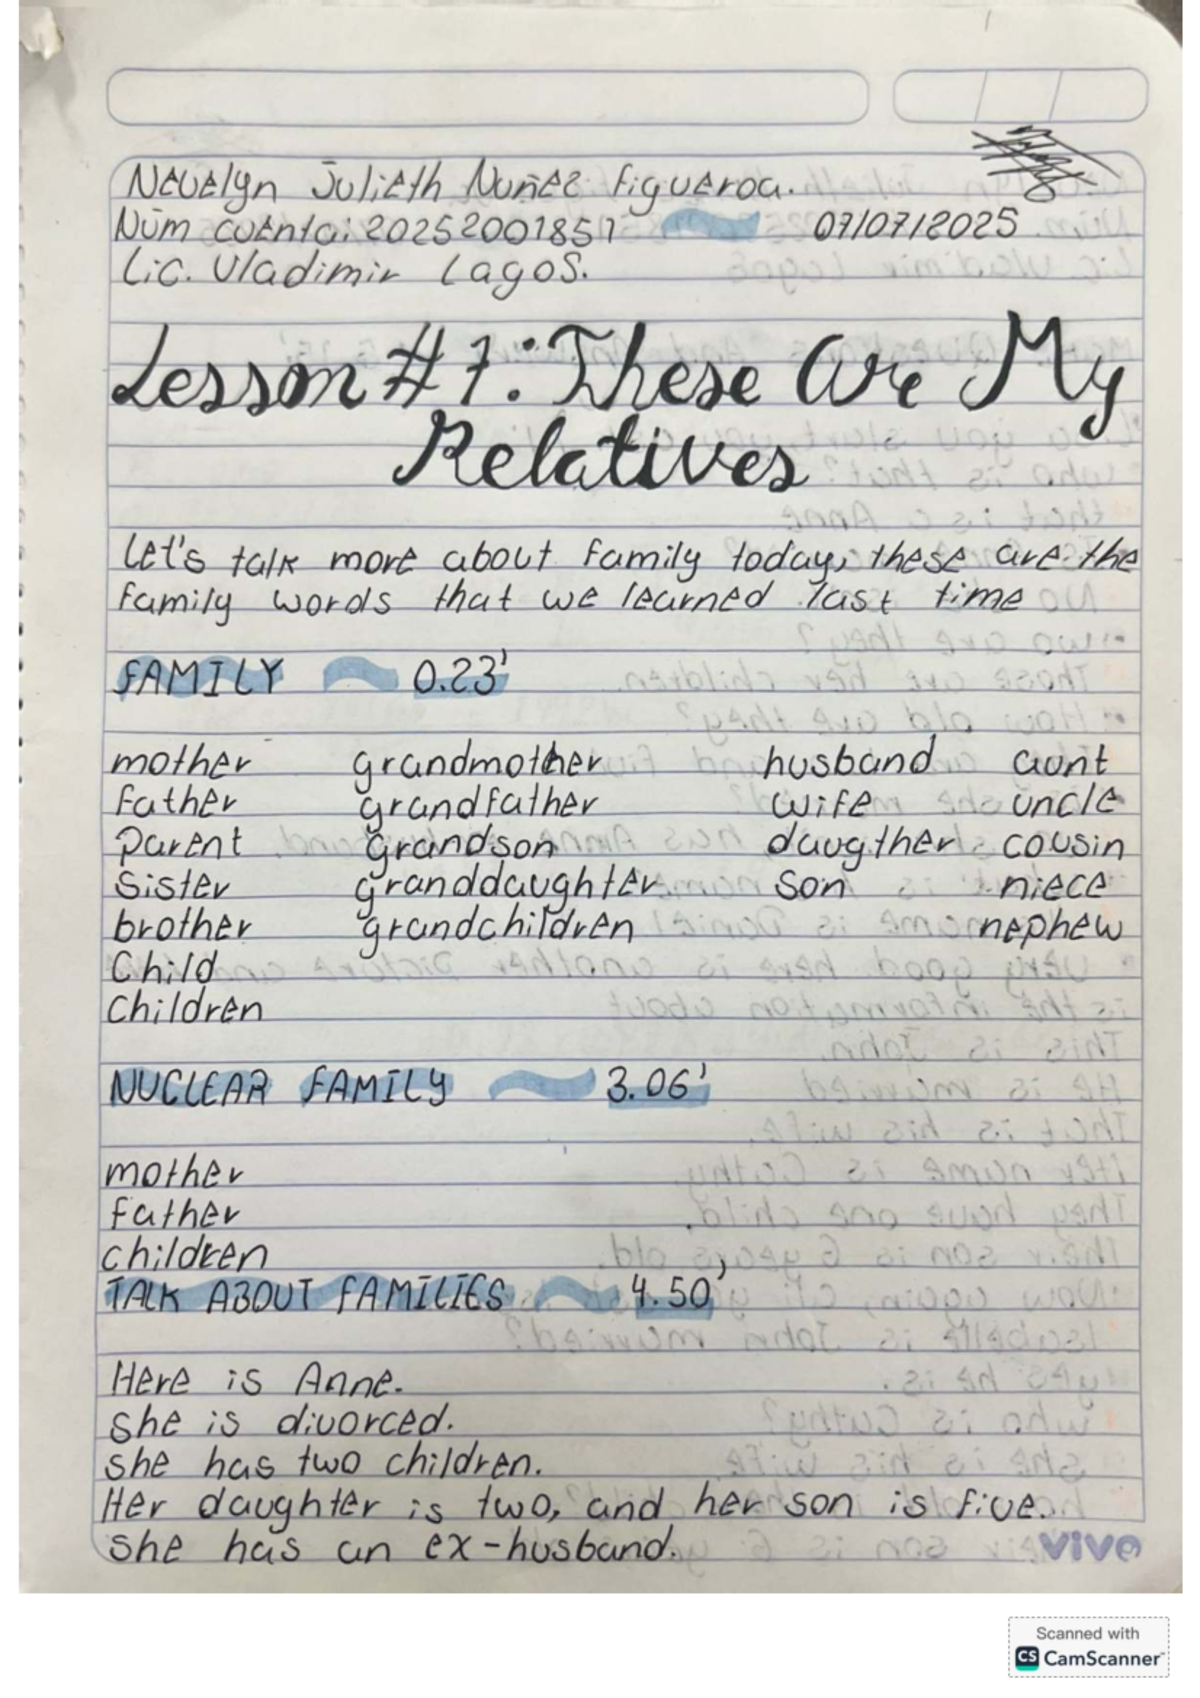 Nevelyn Julieth Nuñez Figueroa.
Núm cuenta: 20252001851 07/07/2025
Lic. Vladimir Lagos.
Lesson #7: These Are My
Relatives
Let's talk more about family today, these are the
family words that we learned last time
FAMILY 0.23'
mother grandmother husband aunt
father grandfather wife uncle
parent grandson daugther cousin
sister granddaughter son niece
brother grandchildren nephew
Child
Children
NUCLEAR FAMILY 3.06'
mother
father
children
TALK ABOUT FAMILIES 4.50'
Here is Anne.
she is divorced.
she has two children.
Her daughter is two, and her son is five.
she has an ex-husband.
vivo
Scanned with
CS CamScanner